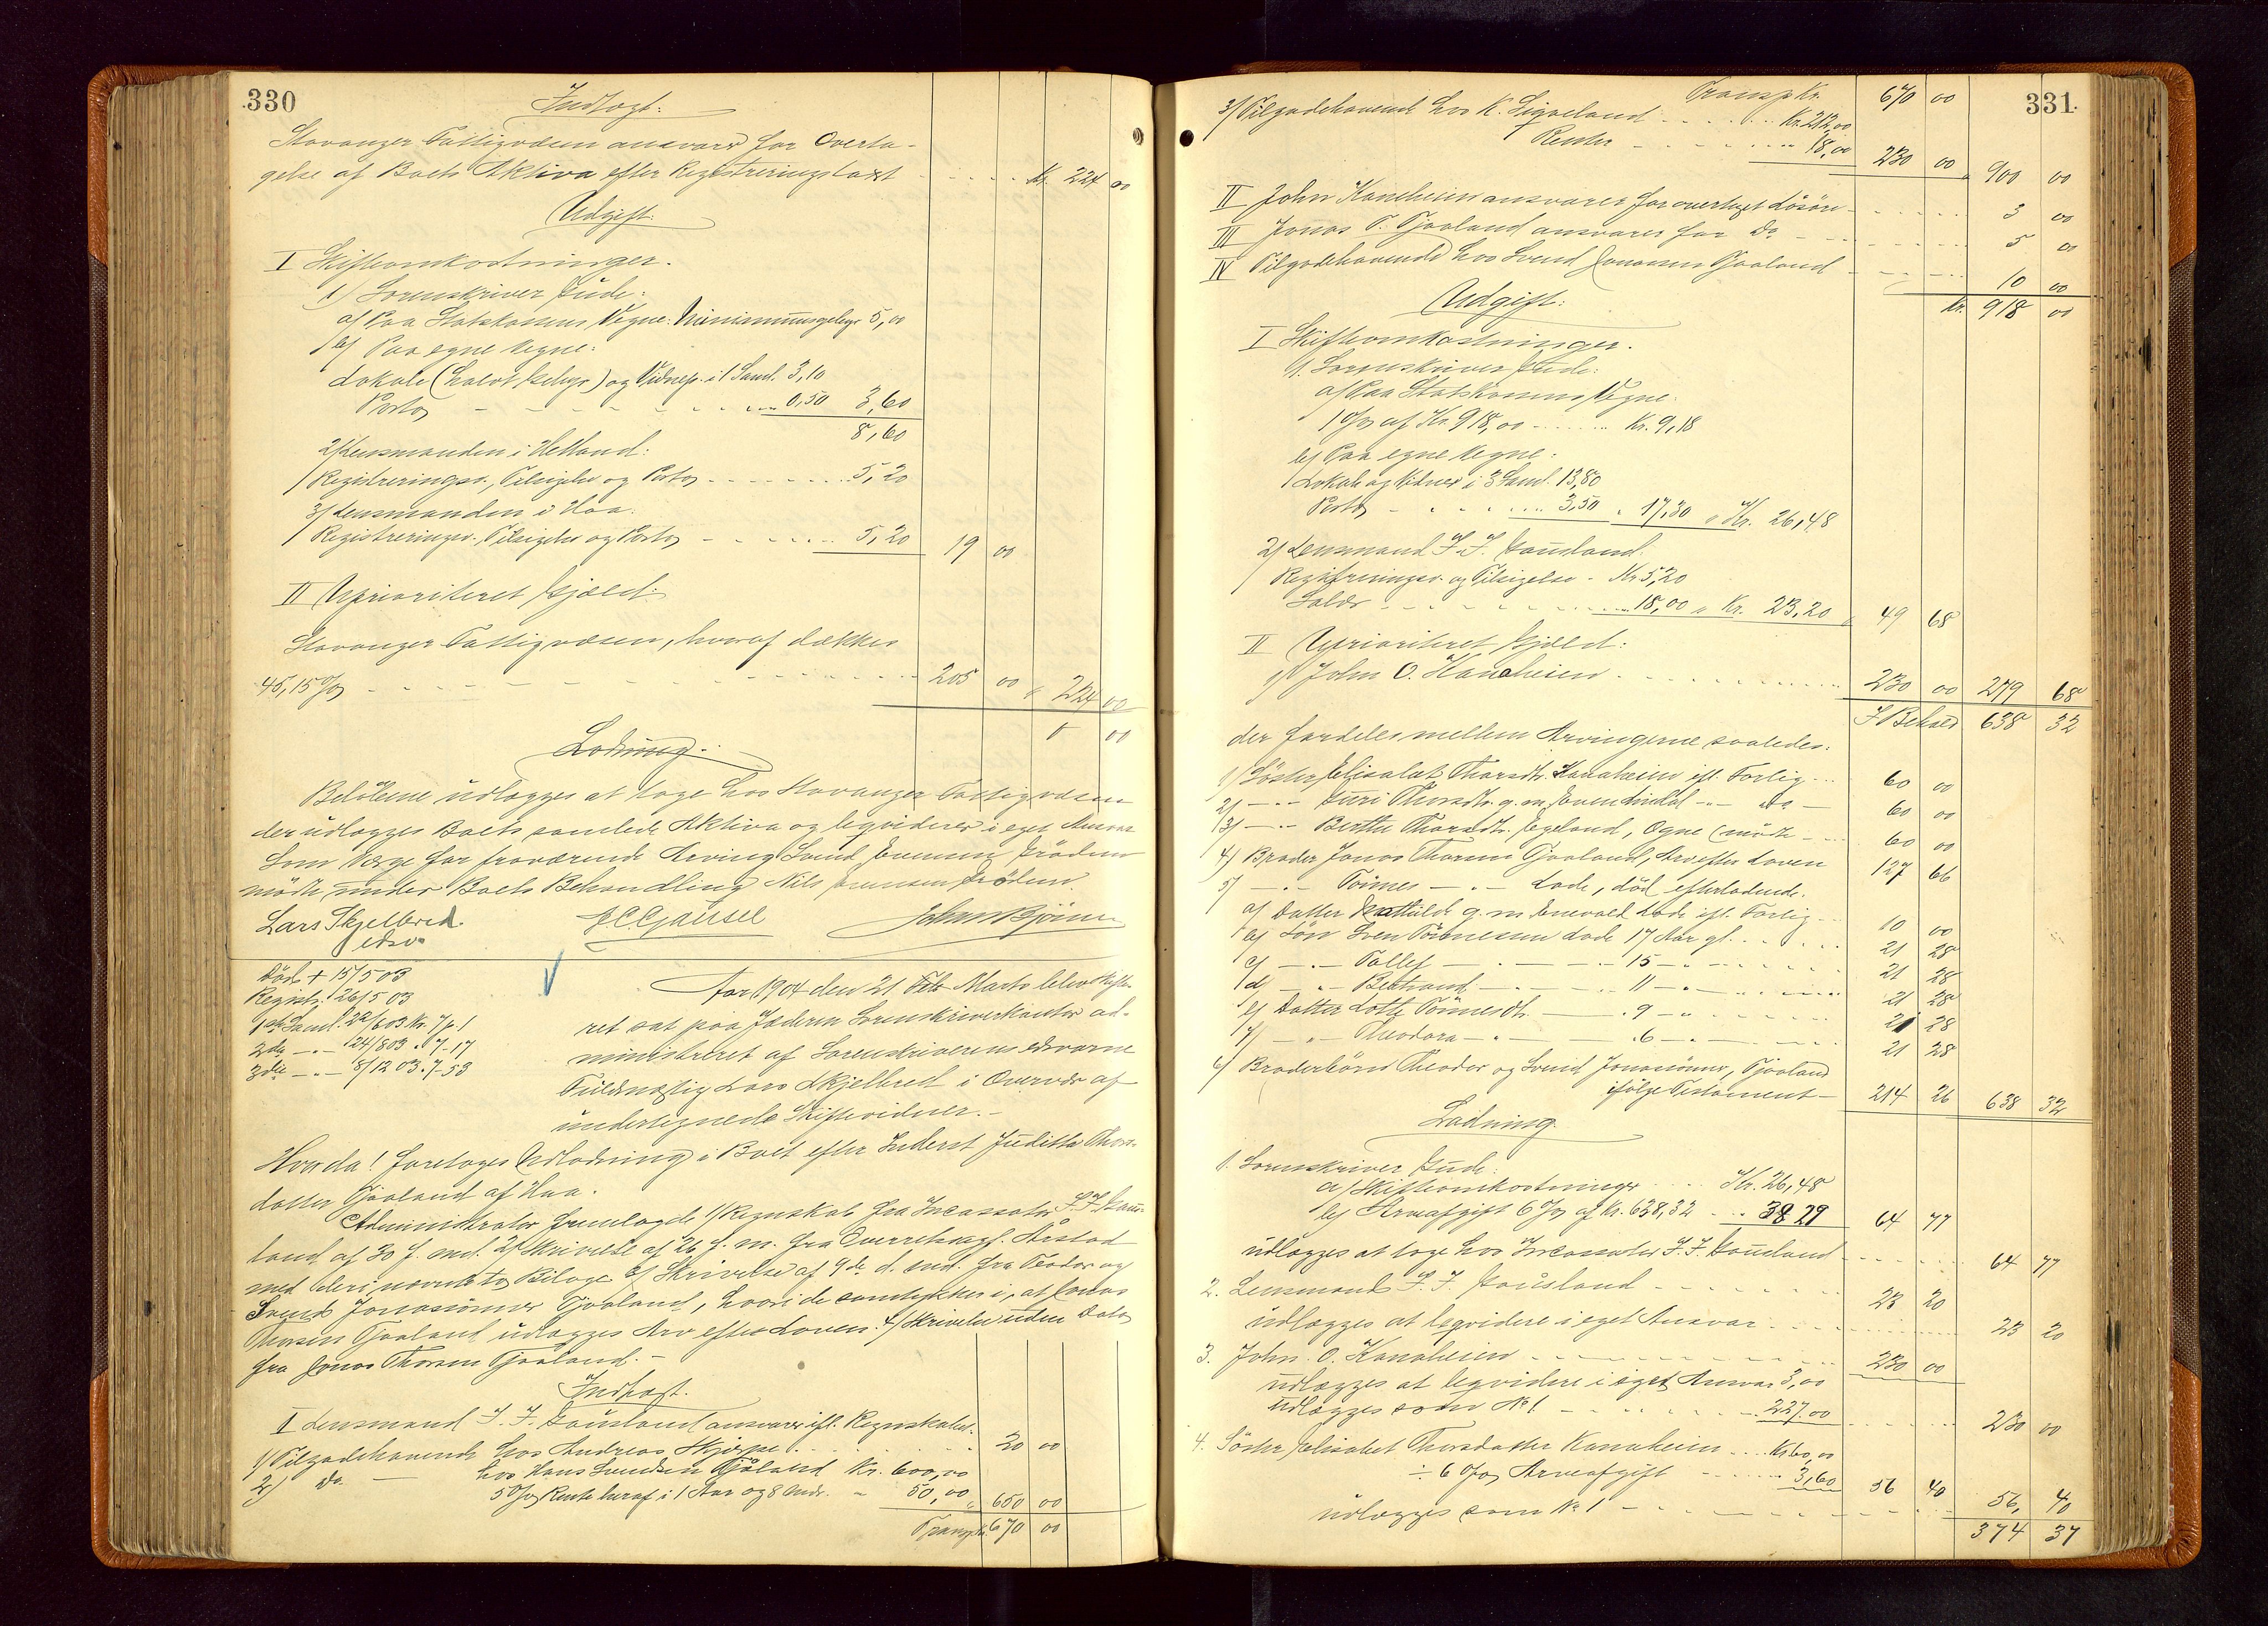 330
Indtægt:
Stavanger Fattigvæsen ansvarer for Overta-
gelse af Boets Aktiva efter Registreringstaxt . . . . Kr. 224 00
Udgift:
I Skifteomkostninger.
1) Sorenskriver Gude:
a) Paa Statskassens Vegne: Minimumsgebyr 5,00
b) Paa egne Vegne:
Lokale (halvt Gebyr) og Vidnep. i 1 Saml. 3,10
Porto - - - - - 0,50 3,60
8,60
2) Lensmanden i Hetland:
Registreringsr., Tilsigelse og Porto - - - - 5,20
3) Lensmanden i Haa.
Registreringsr. Tilsigelse og Porto - - - - 5,20 19 00
II Uprioriteret Gjæld:
Stavanger Fattigvæsen, hvoraf dækkes
45,15 % - - - - - 205 00 " 224 00
0 00
Lodning:
Beløbene udlægges at tage hos Stavanger Fattigvæsen
der udlægges Boets samlede Aktiva og liqviderer i eget Ansvar
Som Værge for fraværende Arving Svend
mødte under Boets Behandling Nils
Lars Skjelbred
edsv.
Johan Bjørn
Død + 15/5 03
Registr. 26/5 03
1ste Saml. 22/6 03 Kr. 7 p. 1
2den - " - 24/8 03 " 7 - 17
3die - " - 8/12 03 " 7 - 53
Aar 1904 den 21 Feb Marts blev Skifte-
ret sat paa Jæderens Sorenskriverkontor ad-
ministreret af Sorenskriverens edsvorne
Fuldmægtig Lars Skjelbred i Overvær af
undertegnede Skiftevidner. -
Hvorda! foretoges Udlodning i Boet efter Inderst Juditta Thors-
datter Tjaaland af Haa.
Administrator fremlagde 1) Regnskab fra Incassator F. F. Gaus-
land af 30 f. md. 2) Skrivelse af 26 f. m. fra Overretssagf. Aarstad
med deri nævnte to Bilage 3) Skrivelse af 9de d. md. fra Teodor og
Svend Jonassønner Tjaaland, hvori de samtykker i, at Jonas
Thorsen Tjaaland udlægges Arv efter Loven. 4) Skrivelse uden Dato
fra Jonas Thorsen Tjaaland. -
Indtægt.
I Lensmand F. F. Gausland ansvarer ifl. Regnskabet.
1) Tilgodehavende hos Andreas Skjærpe . . . . . 20 00
2) Do. - hos Hans Svendsen Tjåland Kr. 600,00
5 % Rente heraf i 1 Aar og 8 Mdr. - 50,00 " 650 00
Transp. Kr. 670 00
331.
Transp. Kr. 670 00
3) Tilgodehavende hos K. Sigveland . . . . . Kr. 212,00
Renter - - - - - 18,00 230 00 " 900 00
II John Kanaheien ansvarer for overtaget Løsøre - - - 3 00
III Jonas T. Tjaaland ansvarer for Do - - - 5 00
IV Tilgodehavende hos Svend Jonassen Tjaaland - - - 10 00
Kr. 918 00
Udgift:
I Skifteomkostninger.
1. Sorenskriver Gude:
a) Paa Statskassens Vegne.
1 % af Kr. 918,00 - - - Kr. 9,18
b) Paa egne Vegne.
Lokale og Vidner i 3 Saml. 13,80
Porto - - - 3,50 " 17,30 " Kr. 26,48
2) Lensmand F. F. Gausland.
Registreringsr. og Tilsigelse - Kr. 5,20
Salær - - - - - 18,00 " Kr. 23,20 " 49 68
II Uprioriteret Gjæld:
1) John O. Kanaheien . . . . . 230 00 279 68
I Behold 638 32
der fordeles mellem Arvingerne saaledes:
1) Søster Elisabet Thorsdtr. Kanaheien ifl. Forlig - - 60 00
2) - " - Guri Thorsdtr. g. m. Even - " - do - 60 00
3) - " - Berthe Thorsdtr. Egeland, Ogne (mødte - - 60 00
4) Broder Jonas Thorsen Tjaaland, Arv efter Loven 127 66
5) - " - Tønnes - " - Lode, død efterladende.
a) Datter Mathilde g. m. Enevald Lode ifl. Forlig - 10 00
b) Søn Sven Tønnesen Lode 17 Aar gl. . . . 21 28
c) - " - Tollef - - - 15 - " - - - 21 28
d) - " - Bertrand - - - 11 - " - - - 21 28
e) Datter Lotte Tønnesdtr. - - 9 - " - - - 21 28
f) - " - Theodora - " - - 6 - " - - - 21 28
6) Broderbørn Theodor og Svend Jonassønner, Tjaaland
ifølge Testament - 214 26 638 32
Lodning.
1. Sorenskriver Gude:
a) Skifteomkostninger . . . Kr. 26,48
b) Arveafgift 6 % af Kr. 638,32 - - " 38 29 64 77
udlægges at tage hos Incassator F. F. Gausland - - - 64 77
2. Lensmand F. F. Gausland - - - - 23 20
udlægges at liqvidere i eget Ansvar . . . . 23 20
3. John O. Kanaheien - - - - 230 00
udlægges at liqvidere i eget Ansvar 3,00
udlægges som No 1 - - - - 227,00 - - - 230 00
4. Søster Elisabet Thorsdatter Kanaheien - - - Kr. 60,00
÷ 6 % Arveafgift - - - - 3,60 56 40
udlægges som No 1 - - - - 56, 40
374 37